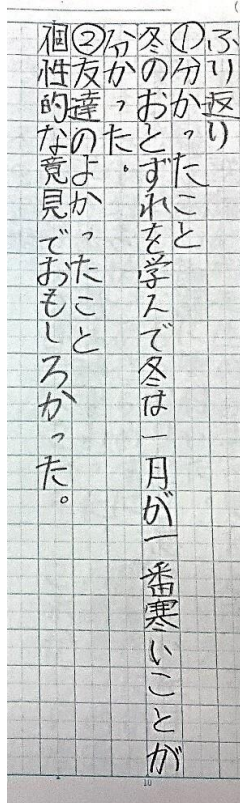 ふり返り
①分かったこと
冬のおとずれを学んで冬は一月が一番寒いことが
分かった。
②友達のよかったこと
個性的な意見でおもしろかった。
10